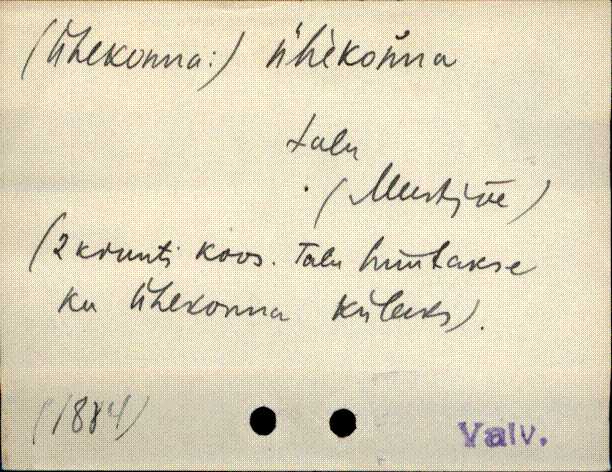 (Ühekonna:) ühekonna
talu
(Mustjõe)
(2 krunti koos. Talu hüütakse
ka Ühekonna külaks).
(1884)
Valv.